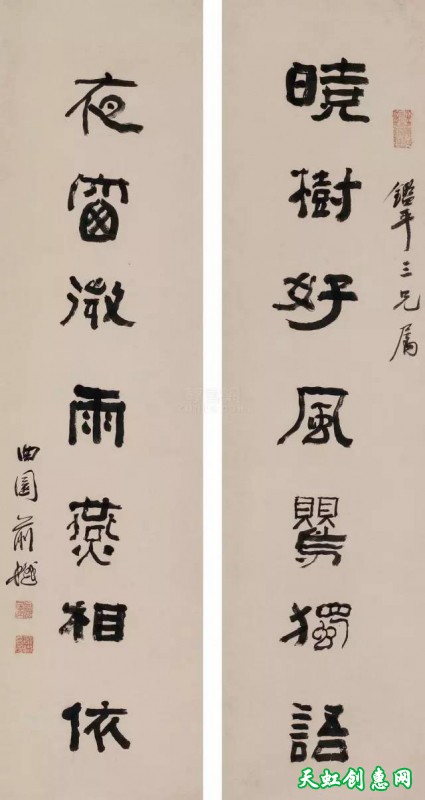 鑑平三兄屬
曉樹好風鸎獨語
夜窗微雨燕相依
曲園俞樾
天虹创惠网